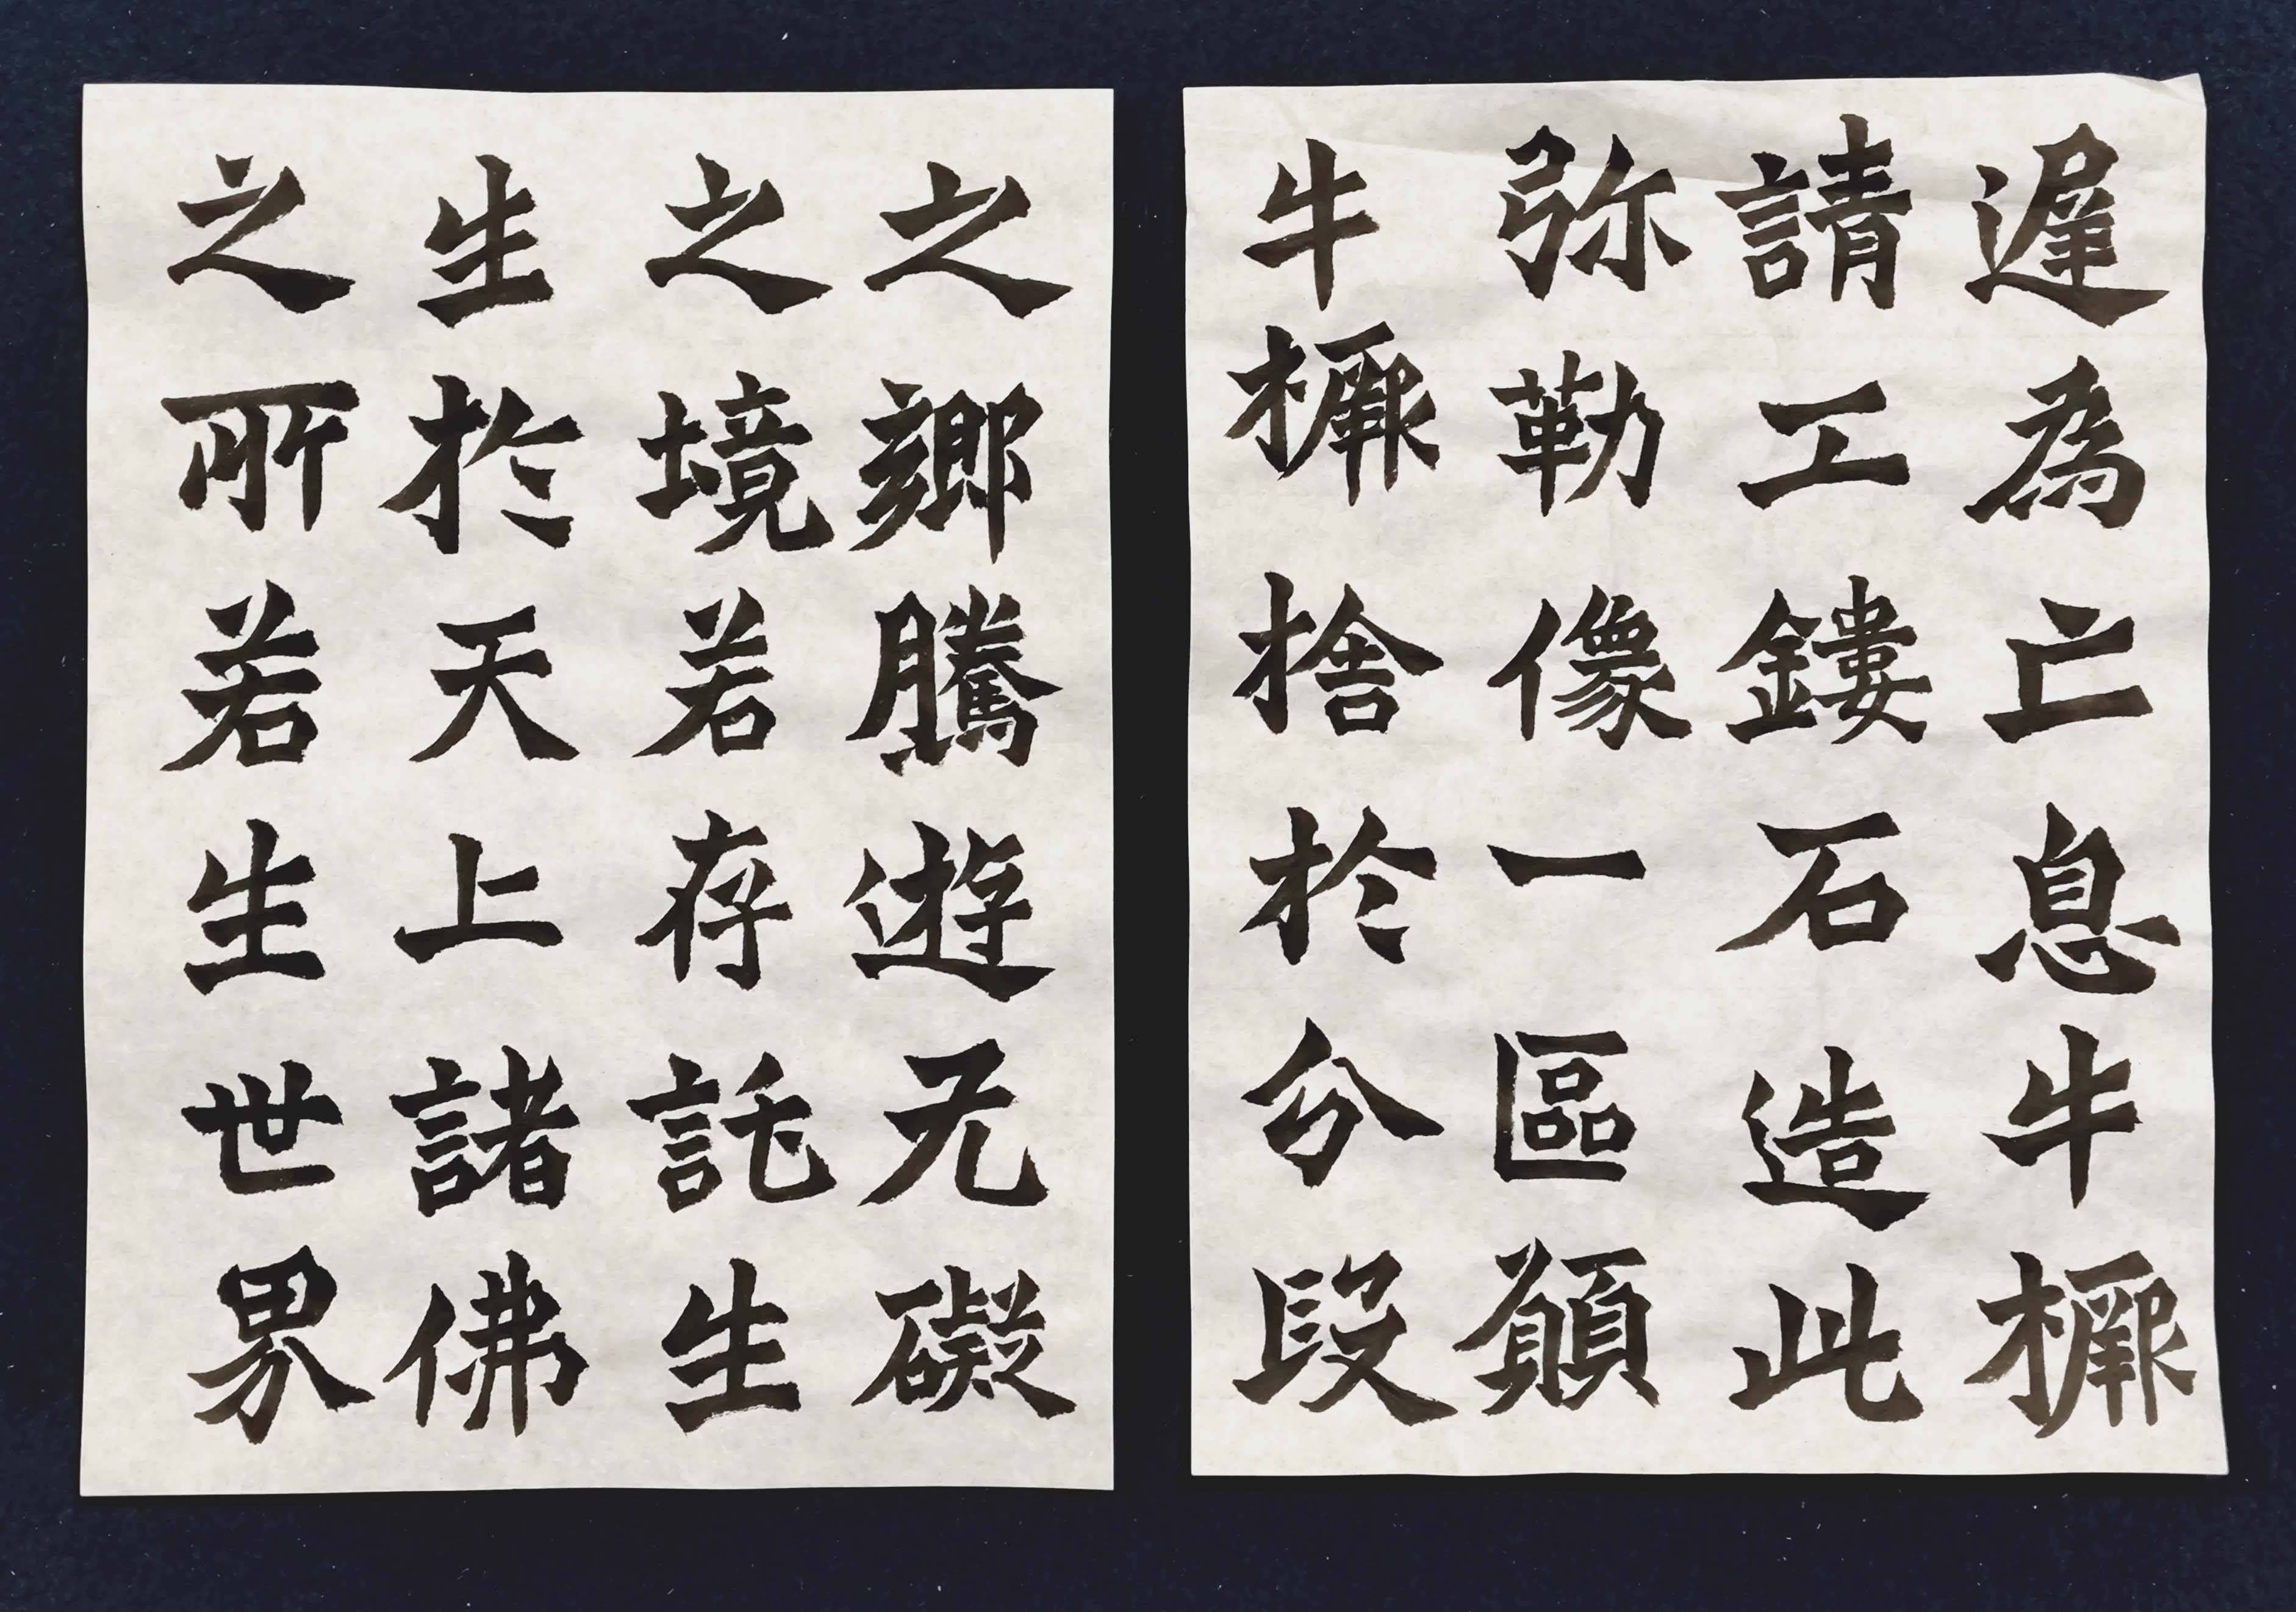 遟為亡息牛橛
請工鏤石造此
弥勒像一區願
牛橛捨於分段
之鄉騰遊无礙
之境若存託生
生於天上諸佛
之所若生世界